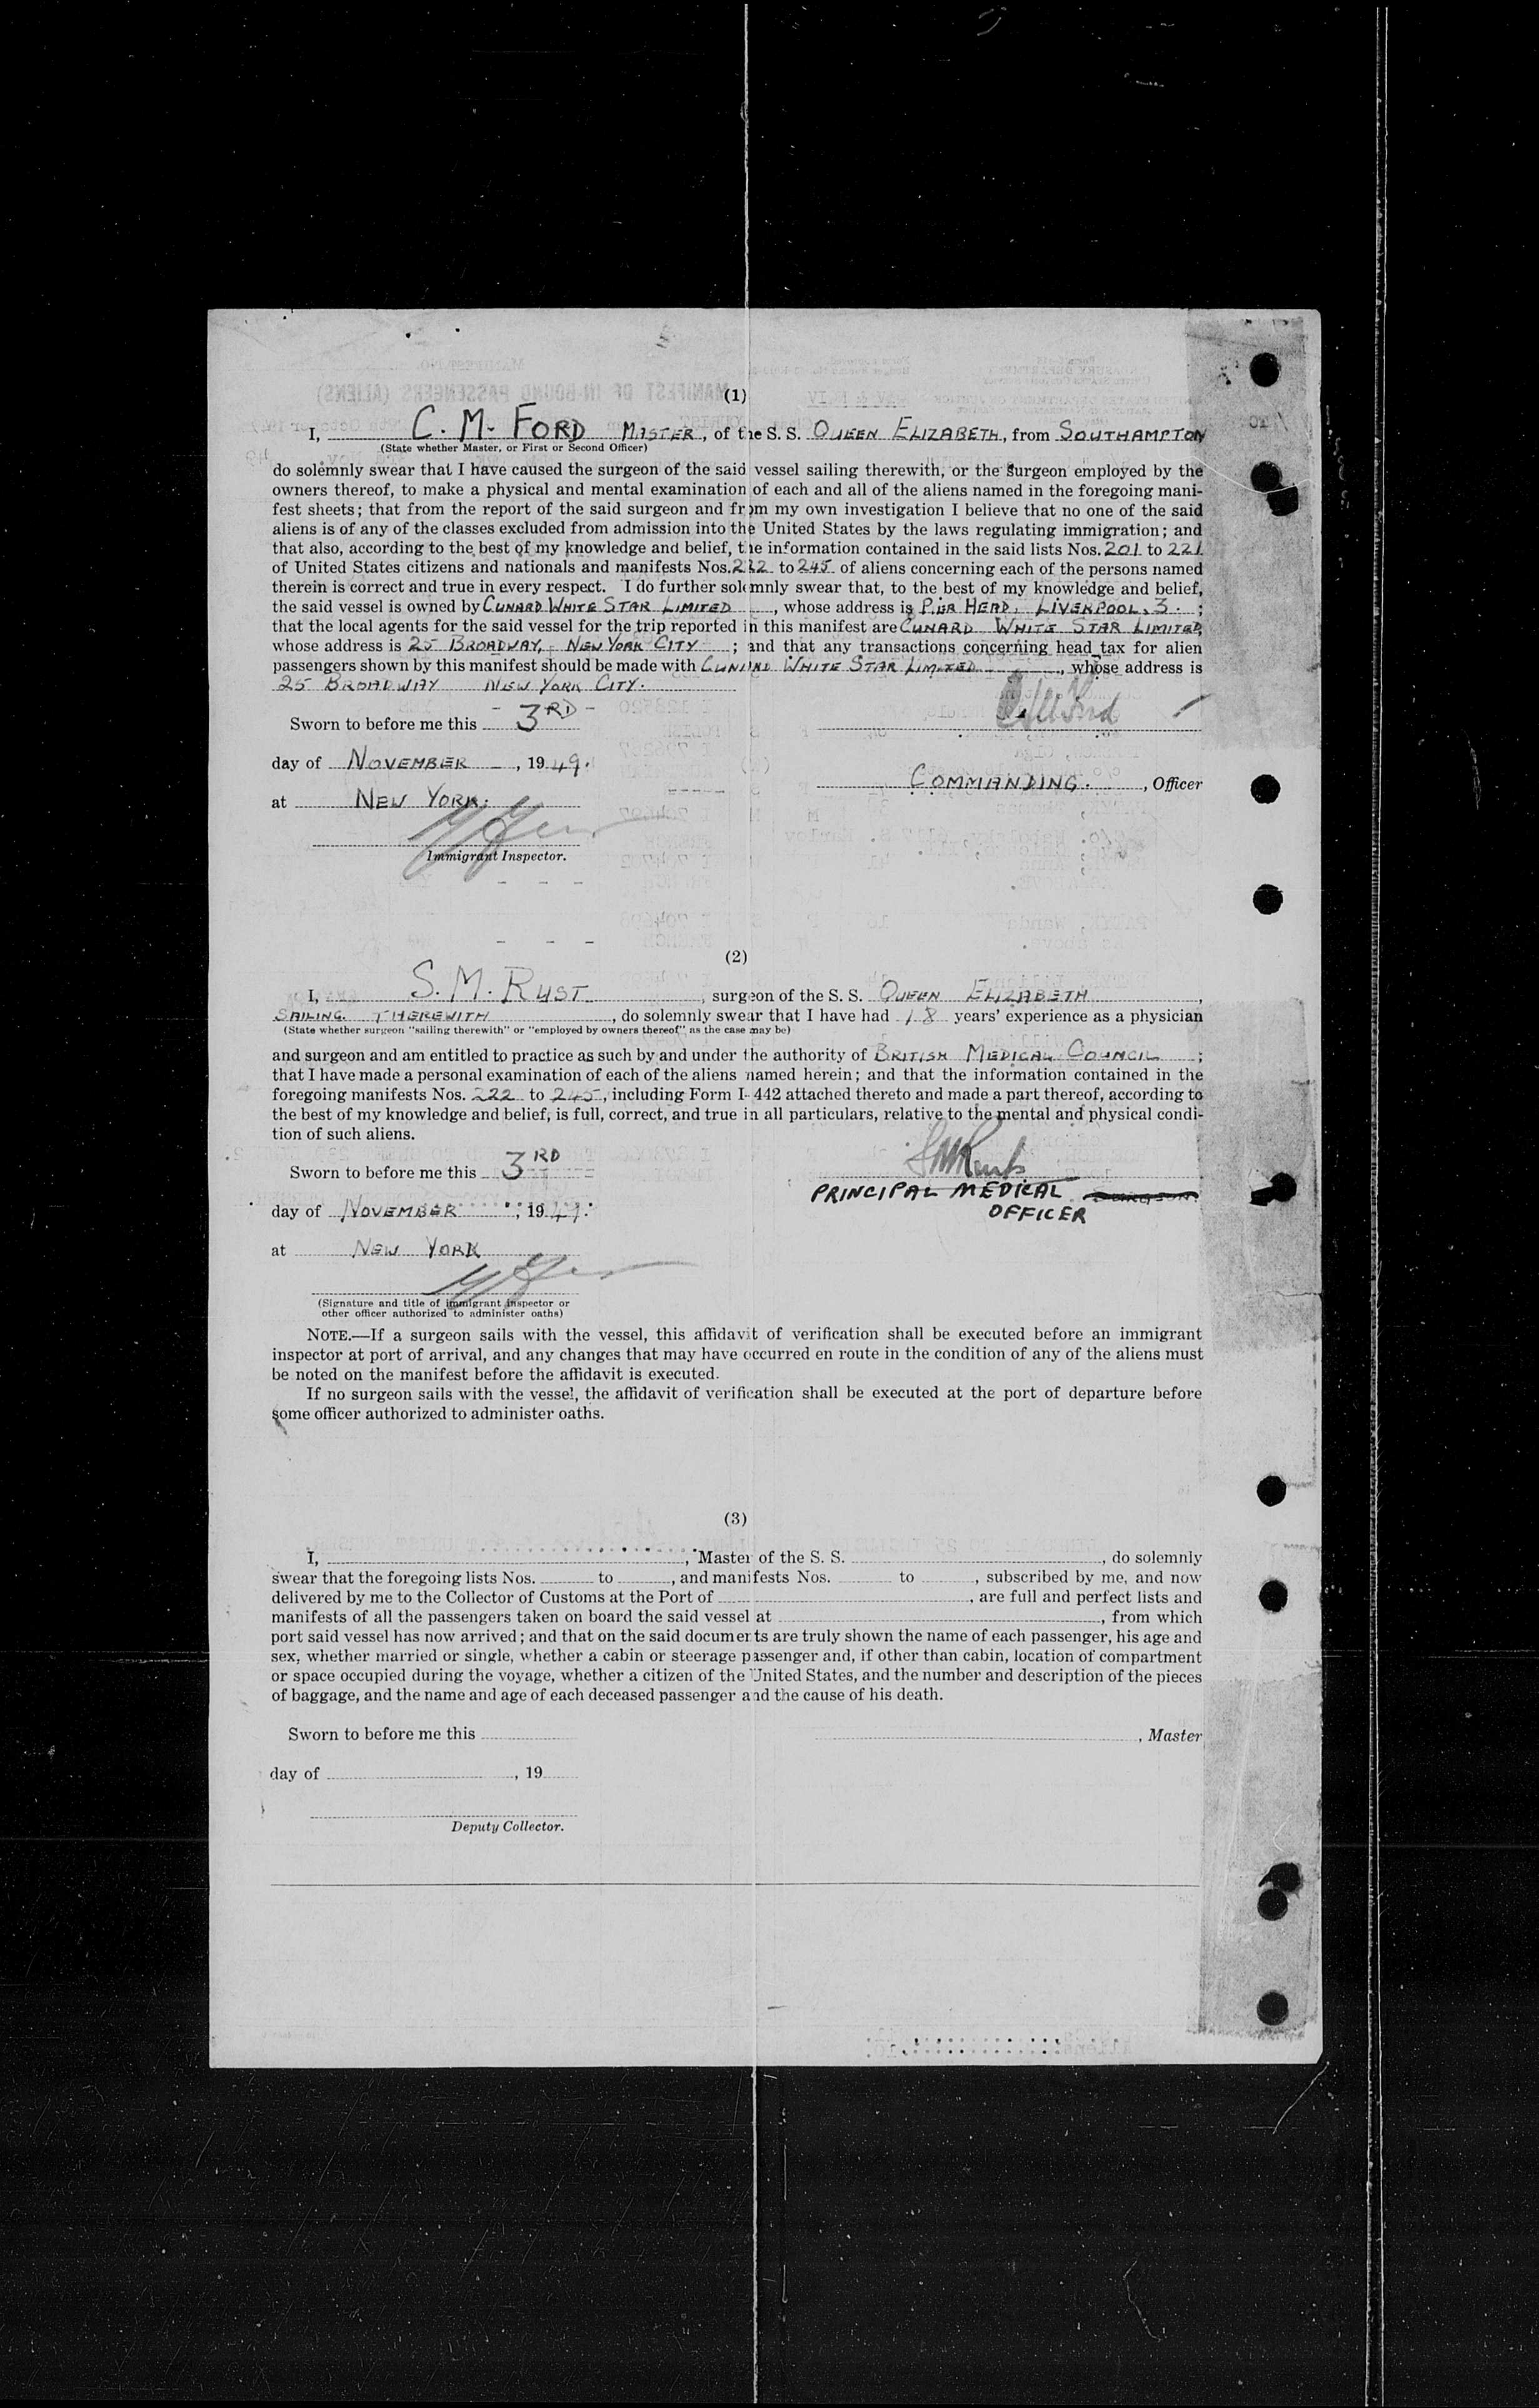 (1)
I, C. M. FORD MASTER, of the S. S. QUEEN ELIZABETH, from SOUTHAMPTON
(State whether Master, or First or Second Officer)
do solemnly swear that I have caused the surgeon of the said vessel sailing therewith, or the surgeon employed by the
owners thereof, to make a physical and mental examination of each and all of the aliens named in the foregoing mani-
fest sheets; that from the report of the said surgeon and from my own investigation I believe that no one of the said
aliens is of any of the classes excluded from admission into the United States by the laws regulating immigration; and
that also, according to the best of my knowledge and belief, the information contained in the said lists Nos. 201 to 221
of United States citizens and nationals and manifests Nos. 222 to 245 of aliens concerning each of the persons named
therein is correct and true in every respect. I do further solemnly swear that, to the best of my knowledge and belief,
the said vessel is owned by CUNARD WHITE STAR LIMITED, whose address is PIER HEAD, LIVERPOOL, 3. ;
that the local agents for the said vessel for the trip reported in this manifest are CUNARD WHITE STAR LIMITED,
whose address is 25 BROADWAY, NEW YORK CITY ; and that any transactions concerning head tax for alien
passengers shown by this manifest should be made with CUNARD WHITE STAR LIMITED, whose address is
25 BROADWAY NEW YORK CITY.
Sworn to before me this 3RD
day of NOVEMBER, 1949.
COMMANDING. , Officer
at NEW YORK.
Immigrant Inspector.
(2)
I, S. M. RUST, surgeon of the S. S. QUEEN ELIZABETH,
SAILING THEREWITH, do solemnly swear that I have had 18 years' experience as a physician
(State whether surgeon "sailing therewith" or "employed by owners thereof" as the case may be)
and surgeon and am entitled to practice as such by and under the authority of BRITISH MEDICAL COUNCIL ;
that I have made a personal examination of each of the aliens named herein; and that the information contained in the
foregoing manifests Nos. 222 to 245, including Form I-442 attached thereto and made a part thereof, according to
the best of my knowledge and belief, is full, correct, and true in all particulars, relative to the mental and physical condi-
tion of such aliens.
Sworn to before me this 3RD
S M Rust
PRINCIPAL MEDICAL
OFFICER
day of NOVEMBER, 1949.
at NEW YORK
(Signature and title of immigrant inspector or
other officer authorized to administer oaths)
NOTE.—If a surgeon sails with the vessel, this affidavit of verification shall be executed before an immigrant
inspector at port of arrival, and any changes that may have occurred en route in the condition of any of the aliens must
be noted on the manifest before the affidavit is executed.
If no surgeon sails with the vessel, the affidavit of verification shall be executed at the port of departure before
some officer authorized to administer oaths.
(3)
I, , Master of the S. S. , do solemnly
swear that the foregoing lists Nos. to , and manifests Nos. to , subscribed by me, and now
delivered by me to the Collector of Customs at the Port of , are full and perfect lists and
manifests of all the passengers taken on board the said vessel at , from which
port said vessel has now arrived; and that on the said documents are truly shown the name of each passenger, his age and
sex, whether married or single, whether a cabin or steerage passenger and, if other than cabin, location of compartment
or space occupied during the voyage, whether a citizen of the United States, and the number and description of the pieces
of baggage, and the name and age of each deceased passenger and the cause of his death.
Sworn to before me this , Master
day of , 19
Deputy Collector.